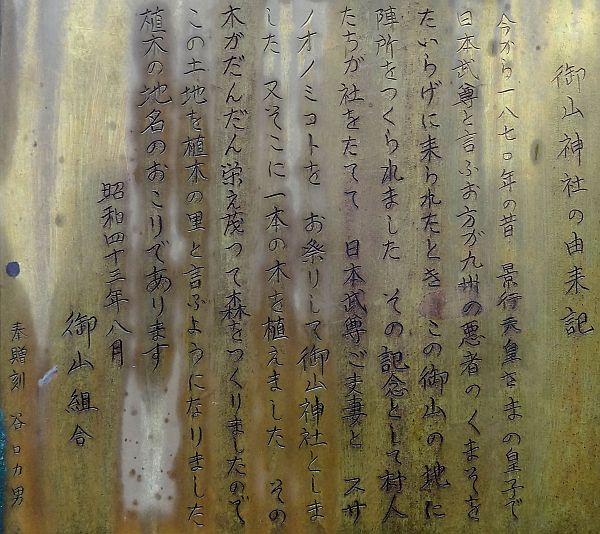 御山神社の由来記
今から一八七〇年の昔 景行天皇さまの皇子で
日本武尊と言ふお方が九州の悪者のくまそを
たいらげに来られたとき この御山の地に
陣所をつくられました その記念として村人
たちが社をたてて 日本武尊ご夫妻と スサ
ノオノミコトを お祭りして御山神社としま
した 又そこに一本の木を植えました その
木がだんだん栄え茂って森をつくりましたので
この土地を植木の里と言ぶようになりました
植木の地名のおこりであります
昭和四十三年八月
御山組合
奉贈刻 谷口カ男